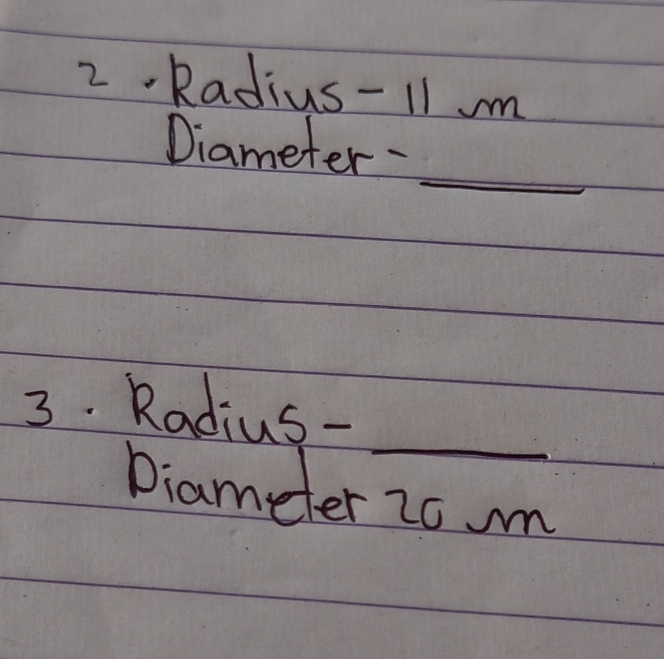 2. Radius - 11 m
Diameter - ______
3. Radius - ______
Diameter 20 m